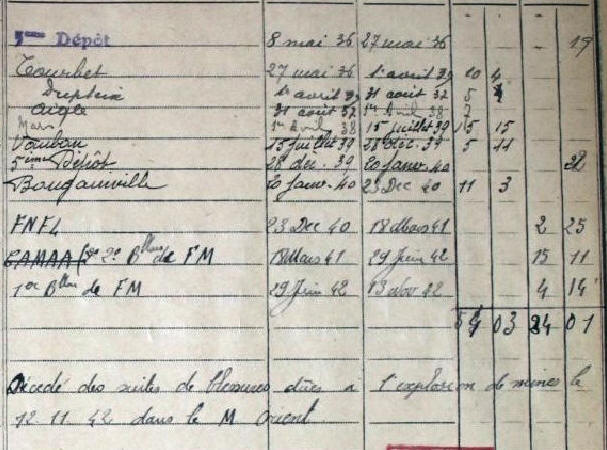 5ème Dépôt 8 mai 36 27 mai 36 19
Tourbet 27 mai 36 1er avril 37 10 4
Dupleix 1er avril 37 31 août 37 5
Aigle 31 août 37 1er Avril 38 7
Mars 1er Avril 38 15 juillet 39 15 15
Vauban 15 juillet 39 28 dec. 39 5 11
5ème Dépôt 28 dec. 39 20 janv. 40 22
Bougainville 20 janv. 40 23 Dec 40 11 3
FNFL 23 Dec 40 18 Mars 41 2 25
CAMAA 2° Bllon de FM 18 Mars 41 29 Juin 42 15 11
1er Bllon de FM 29 Juin 42 13 Nov 42 4 14
54 03 24 01
Décédé des suites de blessures dûes a l'explosion de mines le
12.11.42 dans le M Orient.